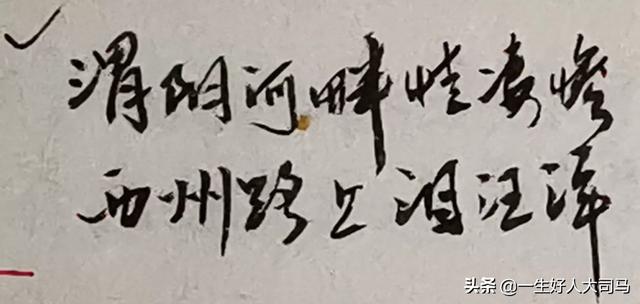 渭阴河畔情凄惨
西州路上泪汪洋
头条 @一生好人大司马